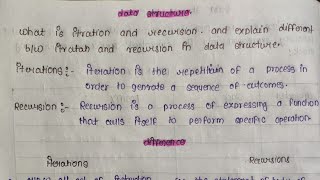 data structure.
what is itration and recursion. and explain different
b/w iratab and recursion in data structure.
Iterations:- Iteration is the repetition of a process in
order to genrate a sequence of outcomes.
Recursion:- Recursion is a process of expressing a function
that calls itself to perform specific operation.
difference
Iterations Recursions